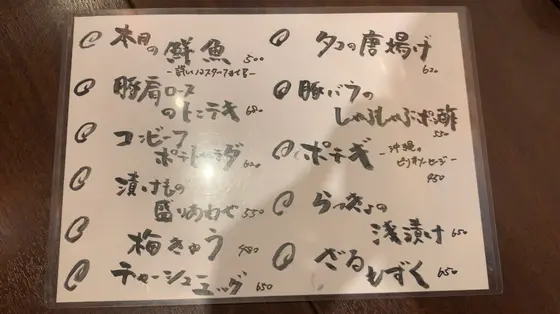 本日の鮮魚 500
豚肩ロース
のトンテキ 680
コンビーフ
ポテトサラダ 620
漬けもの
盛りあわせ 550
梅きゅう 480
チャーシューエッグ 650
タコの唐揚げ 620
豚バラの
しゃぶしゃぶポン酢 550
ポテギ -沖縄の
450
らっきょの
浅漬け 650
ざるもずく 650